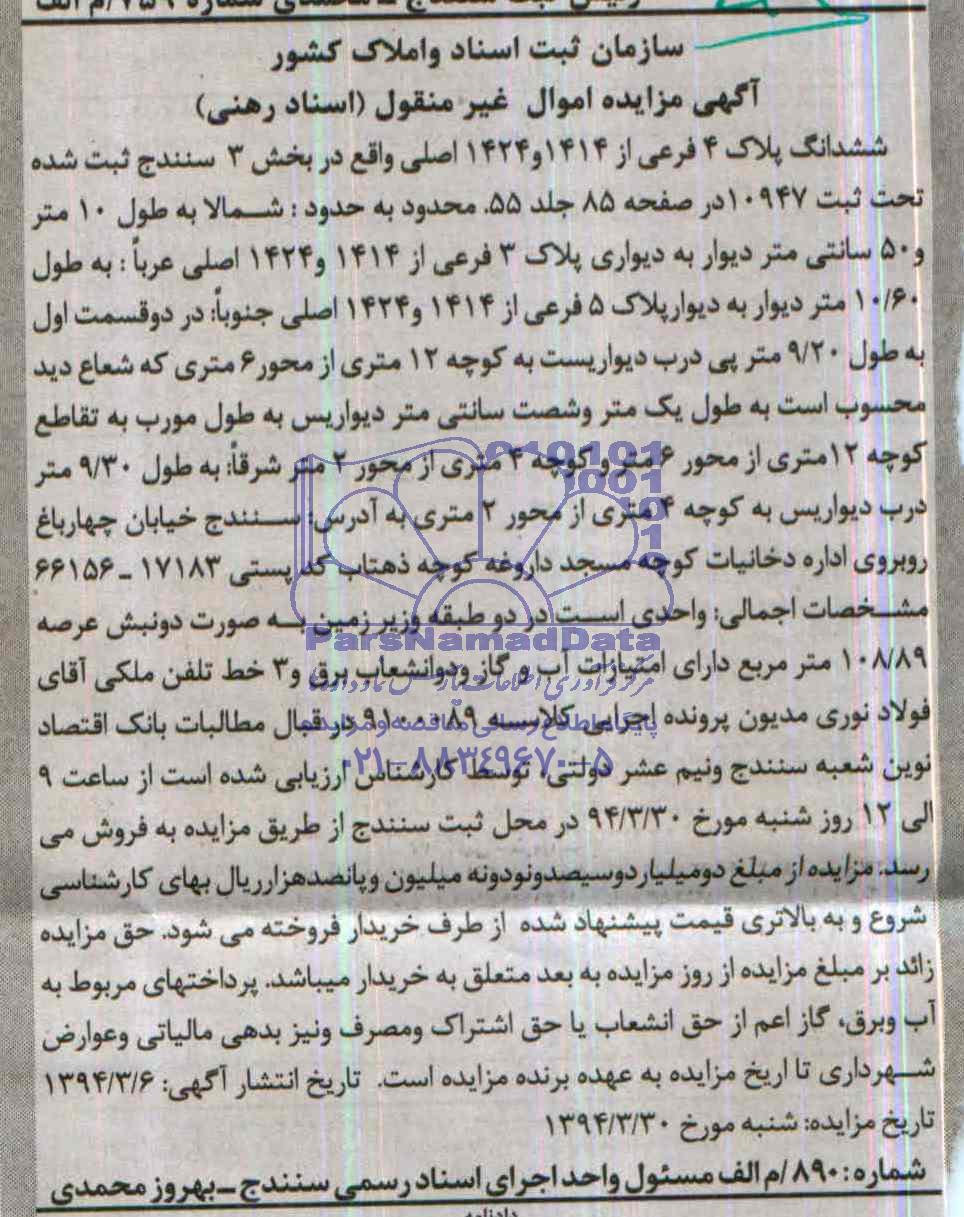 سازمان ثبت اسناد واملاک کشور
آگهی مزایده اموال غیر منقول (اسناد رهنی)
ششدانگ پلاک ۴ فرعی از ۱۴۱۴و۱۴۲۴ اصلی واقع در بخش ۳ سنندج ثبت شده
تحت ثبت ۱۰۹۴۷در صفحه ۸۵ جلد ۵۵. محدود به حدود : شمالا به طول ۱۰ متر
و۵۰ سانتی متر دیوار به دیواری پلاک ۳ فرعی از ۱۴۱۴ و۱۴۲۴ اصلی عرباً : به طول
۱۰/۶۰ متر دیوار به دیوارپلاک ۵ فرعی از ۱۴۱۴ و۱۴۲۴ اصلی جنوباً: در دوقسمت اول
به طول ۹/۲۰ متر پی درب دیواریست به کوچه ۱۲ متری از محور۶ متری که شعاع دید
محسوب است به طول یک متر وشصت سانتی متر دیواریس به طول مورب به تقاطع
کوچه ۱۲متری از محور ۶ متر و کوچه ۴ متری از محور ۲ متر شرقاً: به طول ۹/۳۰ متر
درب دیواریس به کوچه ۴ متری از محور ۲ متری به آدرس: سنندج خیابان چهارباغ
روبروی اداره دخانیات کوچه مسجد داروغه کوچه ذهتاب کد پستی ۱۷۱۸۳ ـ ۶۶۱۵۶
مشخصات اجمالی: واحدی است در دو طبقه وزیر زمین به صورت دونبش عرصه
۱۰۸/۸۹ متر مربع دارای امتیازات آب و گاز ودوانشعاب برق و۳ خط تلفن ملکی آقای
فولاد نوری مدیون پرونده اجرایی کلاسه ۹۱۰۰۰۸۹ در قبال مطالبات بانک اقتصاد
نوین شعبه سنندج ونیم عشر دولتی، توسط کارشناس ارزیابی شده است از ساعت ۹
الی ۱۲ روز شنبه مورخ ۹۴/۳/۳۰ در محل ثبت سنندج از طریق مزایده به فروش می
رسد. مزایده از مبلغ دومیلیاردوسیصدونودونه میلیون وپانصدهزارریال بهای کارشناسی
شروع و به بالاتری قیمت پیشنهاد شده از طرف خریدار فروخته می شود. حق مزایده
زائد بر مبلغ مزایده از روز مزایده به بعد متعلق به خریدار میباشد. پرداختهای مربوط به
آب وبرق، گاز اعم از حق انشعاب یا حق اشتراک ومصرف ونیز بدهی مالیاتی وعوارض
شهرداری تا اریخ مزایده به عهده برنده مزایده است. تاریخ انتشار آگهی: ۱۳۹۴/۳/۶
تاریخ مزایده: شنبه مورخ ۱۳۹۴/۳/۳۰
شماره: ۸۹۰/م الف مسئول واحد اجرای اسناد رسمی سنندج ـ بهروز محمدی
ParsNamadData
۰۲۱-۸۸۳۴۹۶۷۰-۵